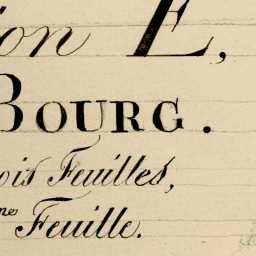 ion E,
BOURG.
ois Feuilles,
me Feuille.